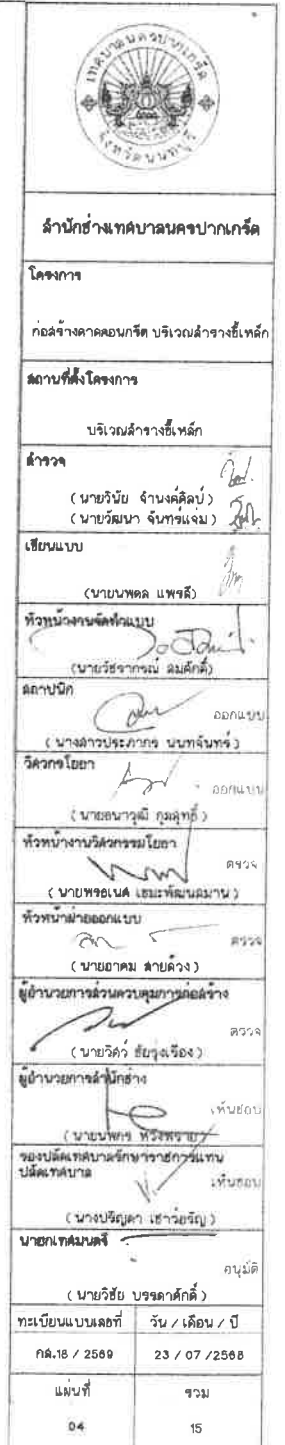 เทศบาลนครปากเกร็ด
จังหวัดนนทบุรี
สำนักช่างเทศบาลนครปากเกร็ด
โครงการ
ก่อสร้างดาดคอนกรีต บริเวณลำรางขี้เหล็ก
สถานที่ตั้งโครงการ
บริเวณลำรางขี้เหล็ก
สำรวจ
(นายวินัย จำนงค์ศิลป์)
(นายวัฒนา จันทร์แจ่ม)
เขียนแบบ
(นายนพดล แพรดี)
หัวหน้างานจัดทำแบบ
(นายวัชรากรณ์ สมศักดิ์)
สถาปนิก
ออกแบบ
(นางสาวประภากร นนทจันทร์)
วิศวกรโยธา
ออกแบบ
(นายธนาวุฒิ กุลสุทธิ์)
หัวหน้างานวิศวกรรมโยธา
ตรวจ
(นายพรธเนศ เขมะพัฒนสมาน)
หัวหน้าฝ่ายออกแบบ
ตรวจ
(นายอาคม สายด้วง)
ผู้อำนวยการส่วนควบคุมการก่อสร้าง
ตรวจ
(นายวิศว์ ชัยรุ่งเรือง)
ผู้อำนวยการสำนักช่าง
เห็นชอบ
(นายนพกร หวังพราย)
รองปลัดเทศบาลรักษาราชการแทน
ปลัดเทศบาล
เห็นชอบ
(นางปริญดา เชาว์อรัญ)
นายกเทศมนตรี
อนุมัติ
(นายวิชัย บรรดาศักดิ์)
ทะเบียนแบบเลขที่ วัน / เดือน / ปี
กส.18 / 2569 23 / 07 /2568
แผ่นที่ รวม
04 15